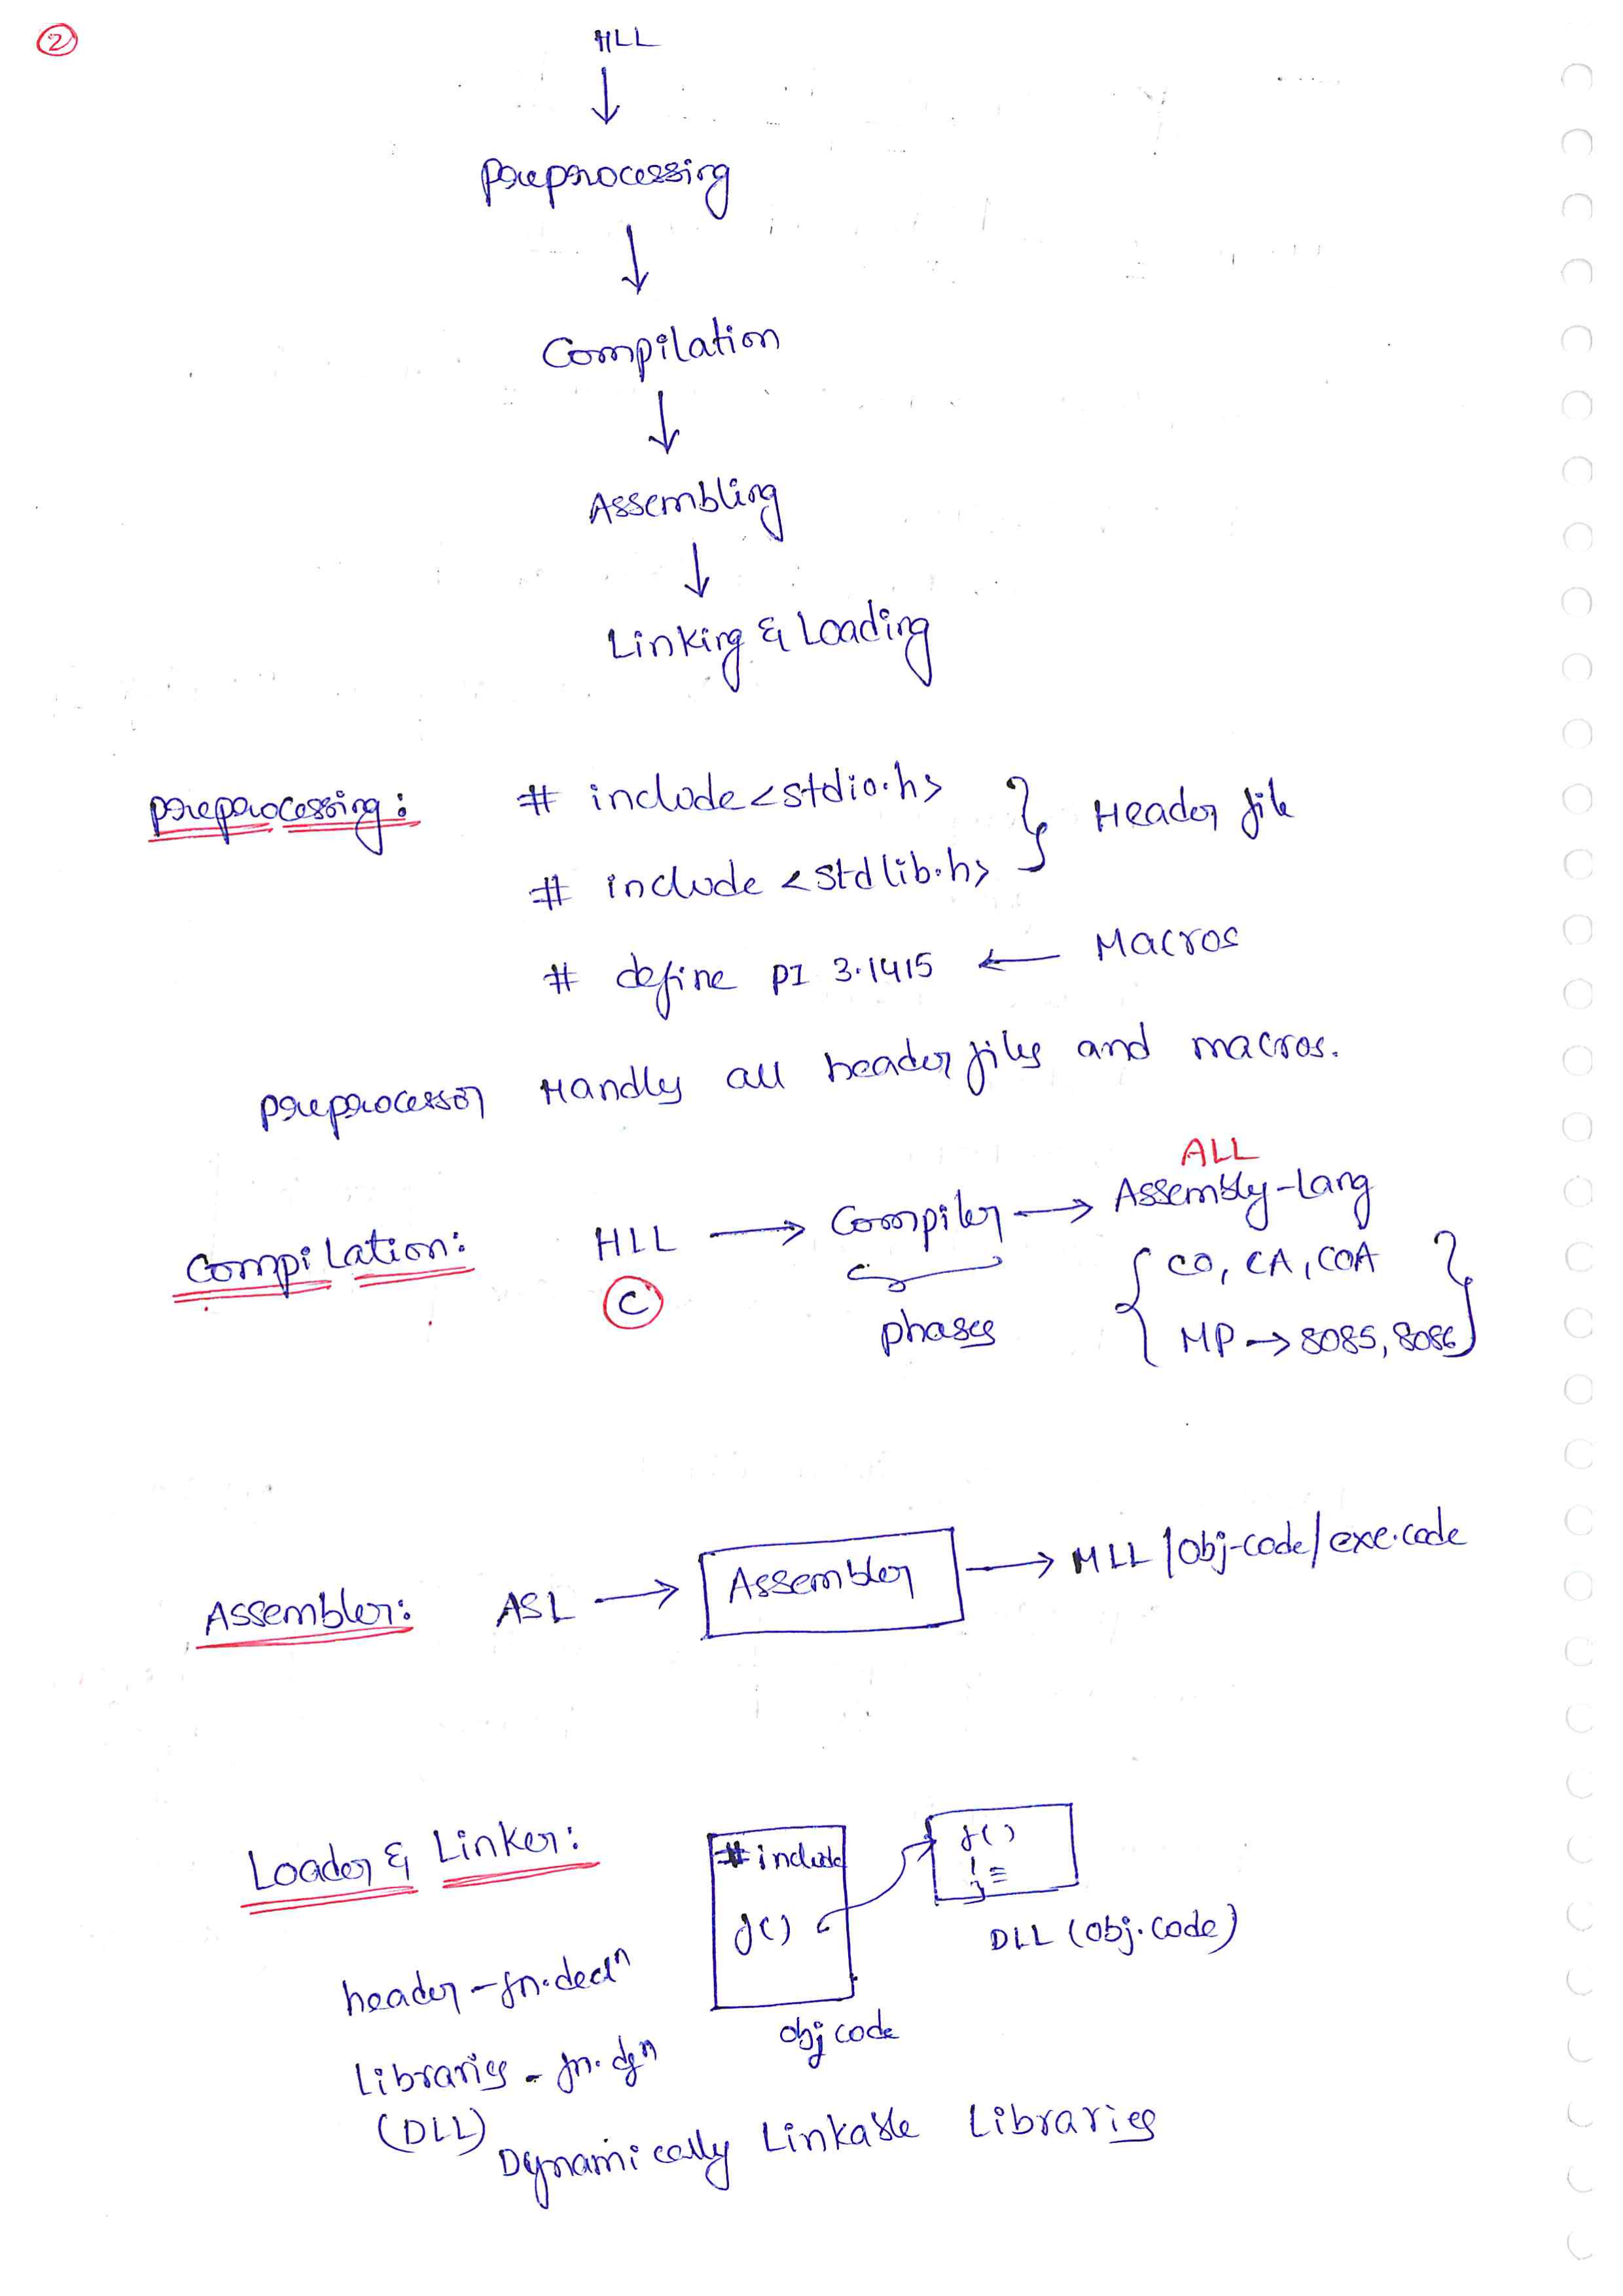 2
HLL
↓
preprocessing
↓
Compilation
↓
Assembling
↓
Linking & Loading
preprocessing: # include<stdio.h> } Header file
# include <stdlib.h>
# define PI 3.1415 ← Macros
preprocessor Handles all header files and macros.
ALL
Compilation: HLL → Compiler → Assembly-Lang
C phases { CO, CA, COA }
MP → 8085, 8086
Assembler: ASL → Assembler → MLL/obj-code/exe.code
Loader & Linker: #include f()
f()
DLL (obj.code)
header - fn.decln
obj code
Libraries - fn.dfn
(DLL)
Dynamically Linkable Libraries